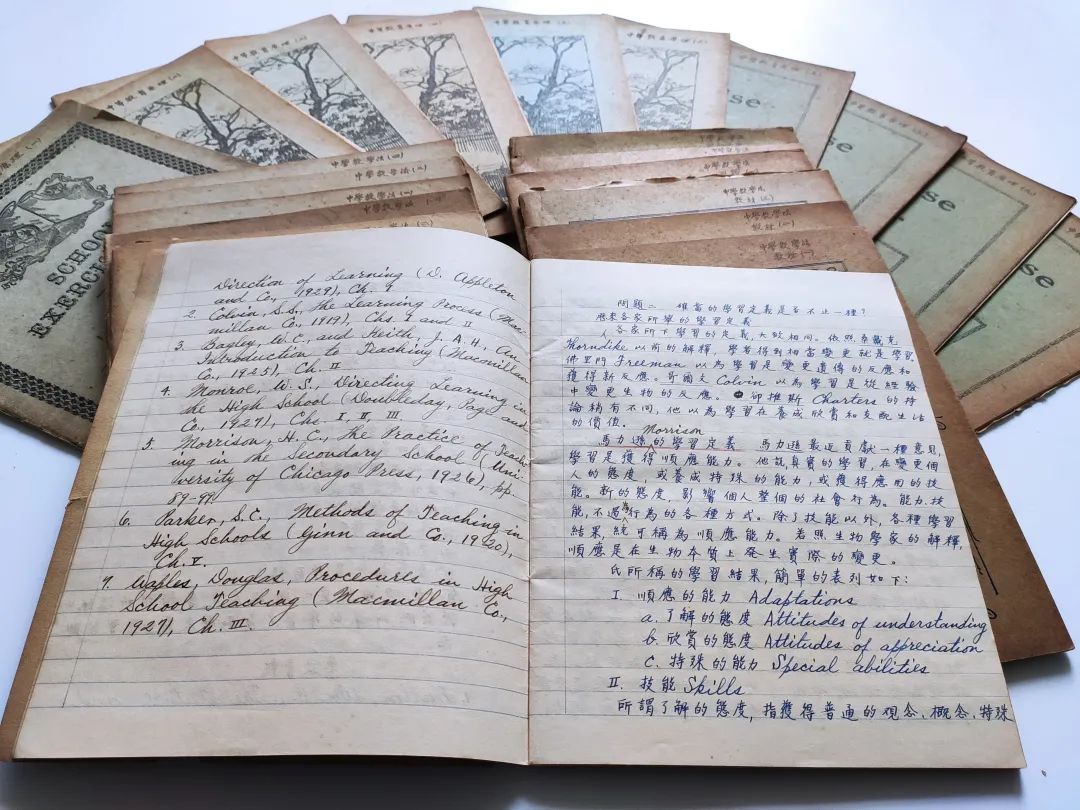 中學教育原理(二)
中學教育原理(三)
中學教育原理
SCHOOL
EXERCISE
中學教學法(四)
中學教學法(三)
中學教學法
中學教學法
中學教學法
中學教學法
中學教學法
教材(二)
中學教學法
教材(一)
中學教學法
Direction of Learning (D. Appleton
and Co., 1929), Ch. 9
2. Colvin, S.S., The Learning Process (Mac-
millan Co., 1919), Chs. I and II
3. Bagley, W.C., and Keith, J.A.H., An
Introduction to Teaching (Macmillan
Co., 1925), Ch. II
4. Monroe, W.S., Directing Learning in
the High School (Doubleday, Page and
Co., 1927), Chs I, II, III.
5. Morrison, H.C., The Practice of Teach-
ing in the Secondary School (Uni-
versity of Chicago Press, 1926), pp.
89-98
6. Parker, S.C., Methods of Teaching in
High Schools (Ginn and Co., 1920),
Ch. V.
7. Waples, Douglas, Procedures in High
School Teaching (Macmillan Co.,
1927), Ch. III.
問題二 確當的學習定義是否不止一種?
歷來各家所舉的學習定義
各家所下學習的定義,大致相同。依照桑戴克
Thorndike 以前的解釋,學者得到相當變更就是學習。
佛里門 Freeman 以為學習是變更遺傳的反應和
獲得新反應。哥爾文 Colvin 以為學習是從經驗
中變更生物的反應。卻推斯 Charters 的持
論稍有不同,他以為學習在養成欣賞和支配生活
的價值。
Morrison
馬力遜的學習定義 馬力遜最近貢獻一種意見,
學習是獲得順應能力。他說真實的學習,在變更個
人的態度,或養成特殊的能力,或獲得應用的技
能。新的態度,影響個人整個的社會行為。能力.技
能,不過為行為的各種方式。除了技能以外,各種學習
結果,統可稱為順應能力。若照生物學家的解釋,
順應是在生物本質上發生實際的變更。
氏所稱的學習結果,簡單的表列如下:
I 順應的能力 Adaptations
a. 了解的態度 Attitudes of understanding
b. 欣賞的態度 Attitudes of appreciation
c. 特殊的能力 Special abilities
II. 技能 Skills
所謂了解的態度,指獲得普通的观念、概念、特殊